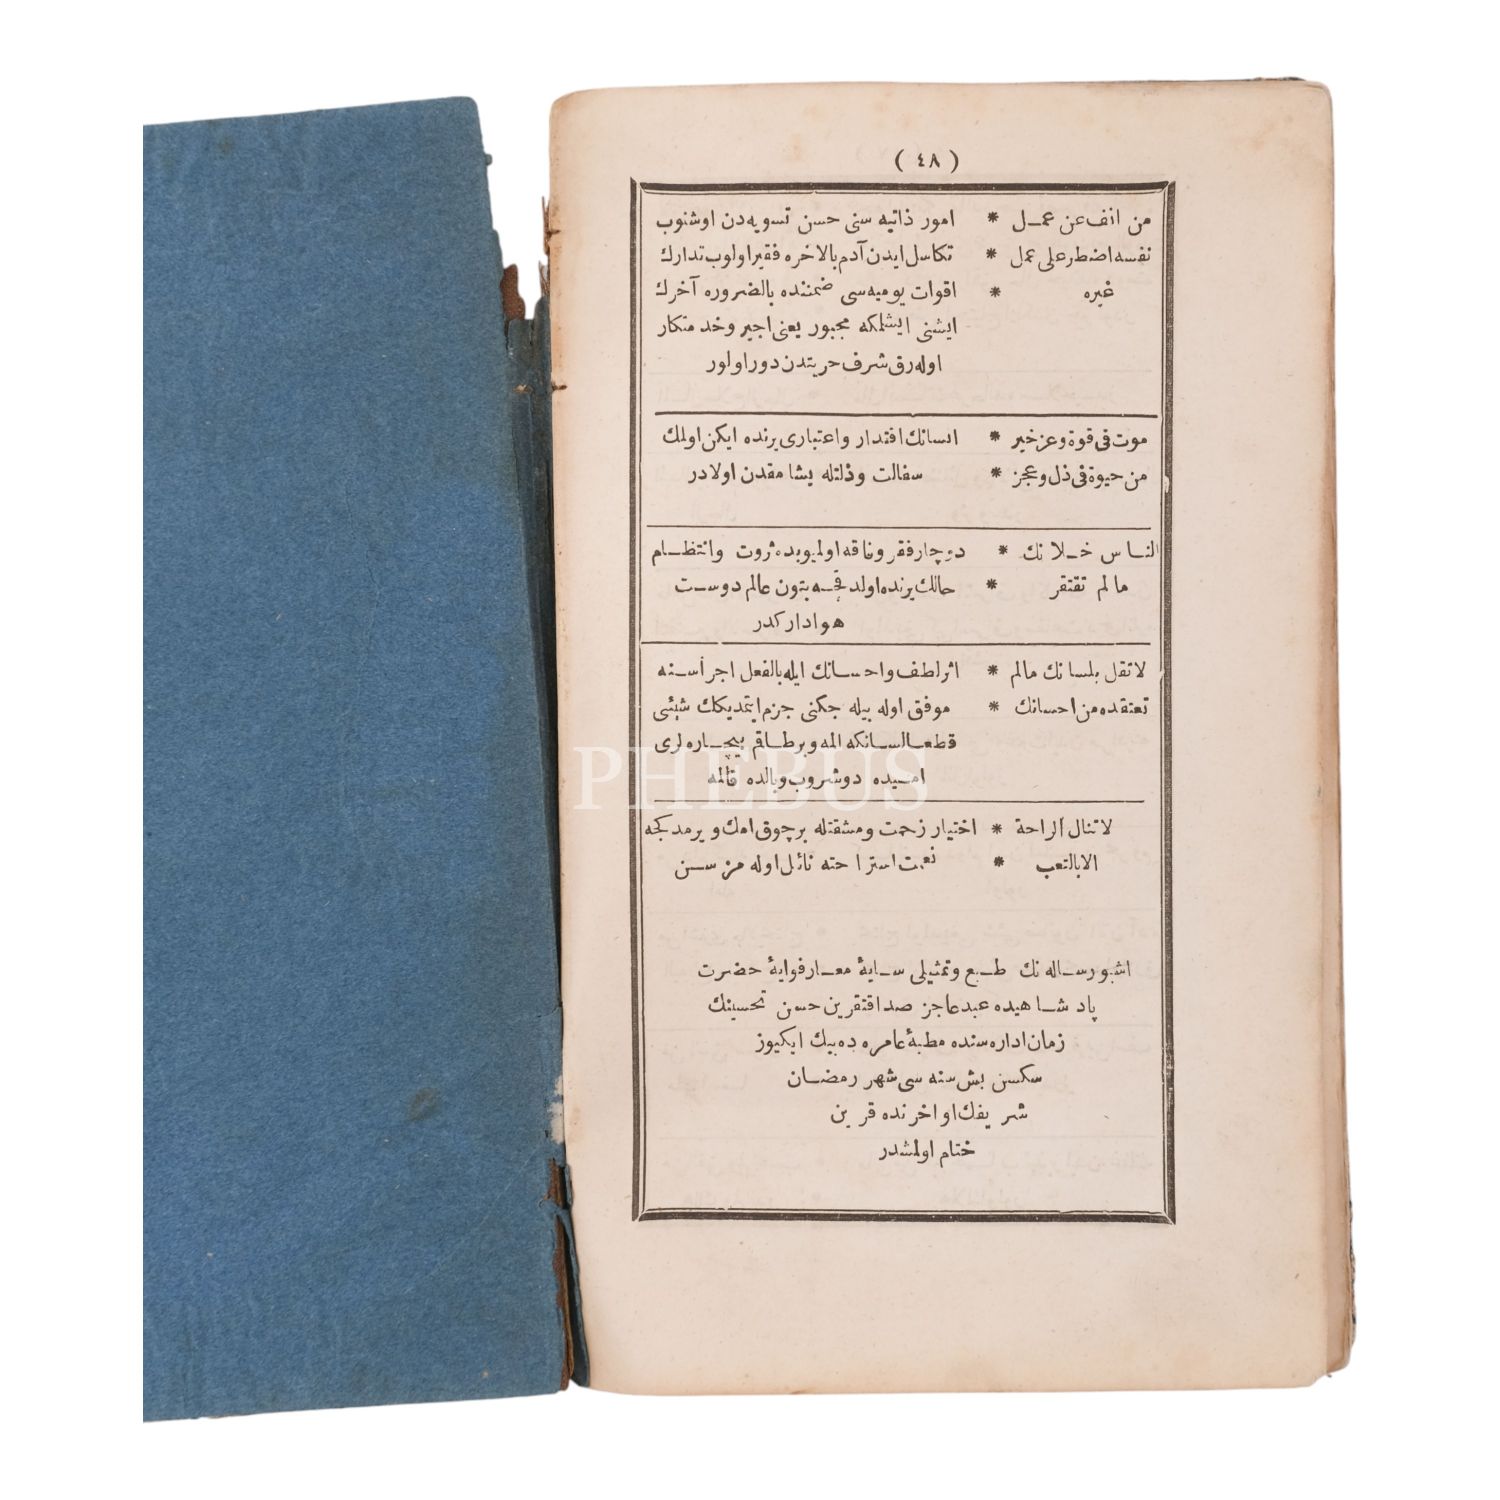 ( ٤٨ )
من انف عن عمــل * امور ذاتیه سنی حسن تسویه دن اوشنوب
نفسه اضطر علی عمل * تکاسل ایدن آدم بالاخره فقیر اولوب تدارك
غیره * اقوات یومیه سی ضمننده بالضروره آخرك
ایشنی ایشلمکه مجبور یعنی اجیر وخدمتکار
اوله رق شرف حریتدن دور اولور
موت فی قوة وعز خیر * انسانك اقتدار واعتباری یرنده ایکن اولمك
من حیوة فی ذل وعجز * سفالت وذلتله یشامقدن اولادر
النــاس خــلانك * دوچار فقر وفاقه اولمیوبده ثروت وانتظــام
مالم تفتقر * حالك یرنده اولدقجــه بتون عالم دوســت
هوادارکدر
لاتقل بلسانك مالم * اثر لطف واحسانك ایله بالفعل اجراســنه
تعتقده من احسانك * موفق اوله بیله جکنی جزم ایتمدیکك شیئی
قطعــا لسانکه المه وبر طــاقم بیچــاره لری
امــیده دوشروب وبالده قالمه
لاتنال الراحة * اختیار زحمت ومشقتله برچوق امك ویرمدکجه
الا بالتعب * نعمت استراحته نائل اوله مزســن
اشبو رســاله نك طــبع وتمثیلی ســایۀ معــارفوایۀ حضرت
پادشــاهیده عبد عاجز صداقتقرین حسن تحسینك
زمان اداره سنده مطبعۀ عامره ده بیك ایکیوز
سکسن بش سنه سی شهر رمضــان
شریفك اواخرنده قرین
ختام اولمشدر
PHEBUS